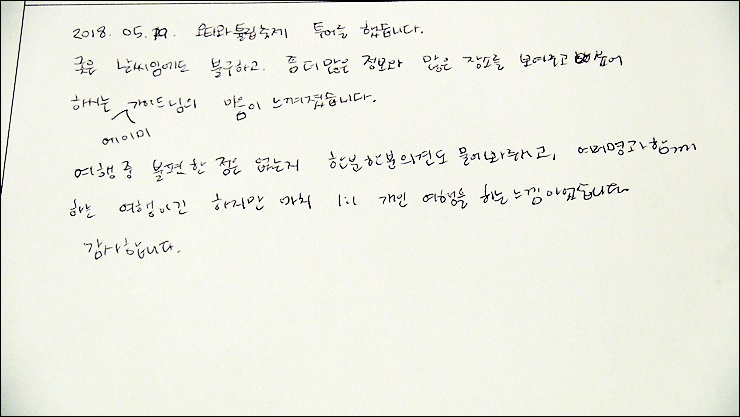 2018. 05. 19. 오타와튤립축제 투어를 했습니다.
궂은 날씨임에도 불구하고. 좀더많은 정보와 많은 장소를 보여주고 싶어
하시는 가이드님의 마음이 느껴졌습니다.
에이미
여행중 불편한 점은 없는지 한분한분의견도 물어봐주시고, 여러명과함께
하는 여행이긴 하지만 마치 1:1 개인 여행을 하는느낌이었습니다
감사합니다.